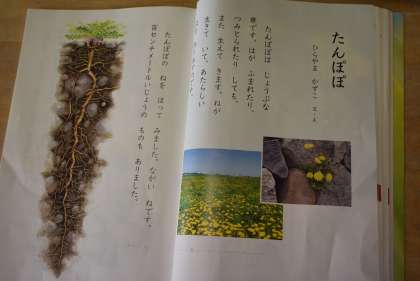 たんぽぽ
ひらやま かずこ 文・え
たんぽぽは じょうぶな
草です。はが ふまれたり、
つみとられたり しても、
また 生えて きます。ねが
生きて いて、あたらしい
たんぽぽの ねを ほって みました。ながい ねです。
百センチメートルいじょうの ものも ありました。